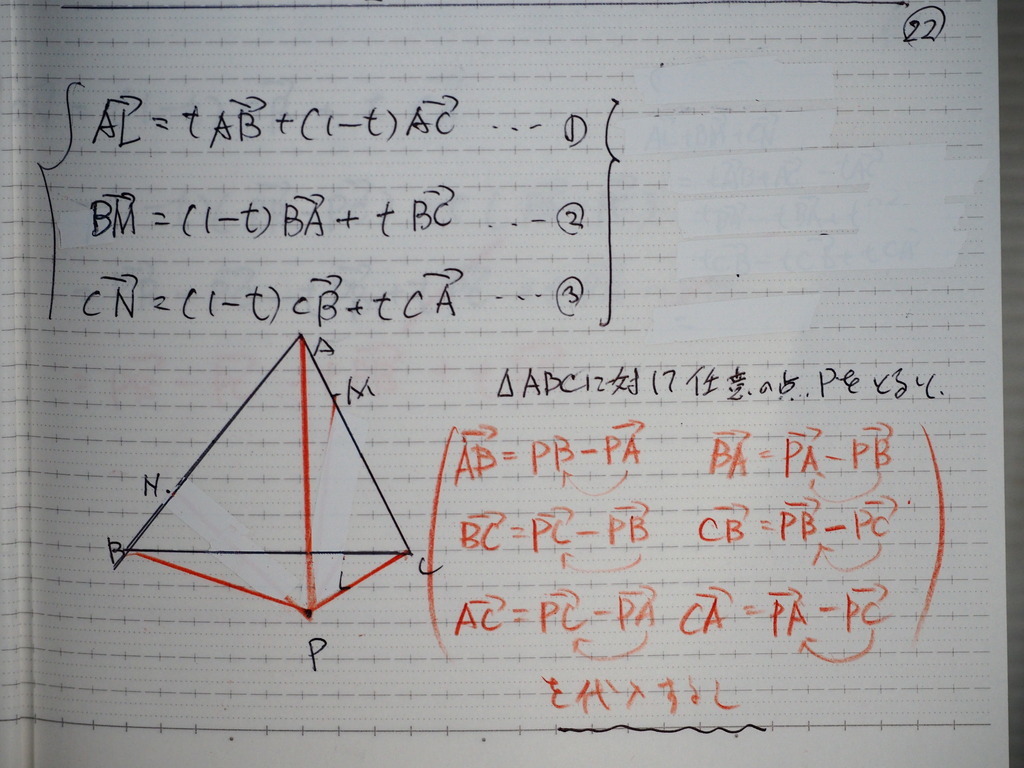 22
AL→ = tAB→ + (1-t)AC→ ... ①
BM→ = (1-t)BA→ + tBC→ ... ②
CN→ = (1-t)CB→ + tCA→ ... ③
A
M
N
B
L
C
P
△ABCに対して任意の点Pをとると、
AB→ = PB→ - PA→ BA→ = PA→ - PB→
BC→ = PC→ - PB→ CB→ = PB→ - PC→
AC→ = PC→ - PA→ CA→ = PA→ - PC→
を代入すると